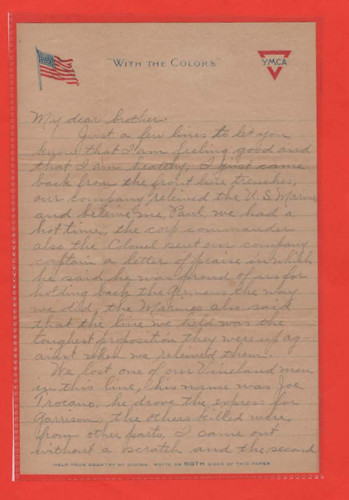 "WITH THE COLORS"
YMCA
My dear brother
Just a few lines to let you
know that I am feeling good and
that I am healthy, I just came
back from the front line trenches,
our company relieved the U.S. Marines
and believe me, Paul we had a
hot time, the corp commander
also the Colonel sent our company
captain a letter of praise in which
he said he was proud of us for
holding back the Germans the way
we did, the Marines also said
that the line we held was the
toughest proposition they were up ag-
ainst when we relieved them.
We lost one of our Vineland men
in this line, his name was Joe
Trocano, he drove the express for
Garrison, the others killed were
from other parts, I came out
without a scratch and the second
HELP YOUR COUNTRY BY SAVING. WRITE ON BOTH SIDES OF THIS PAPER